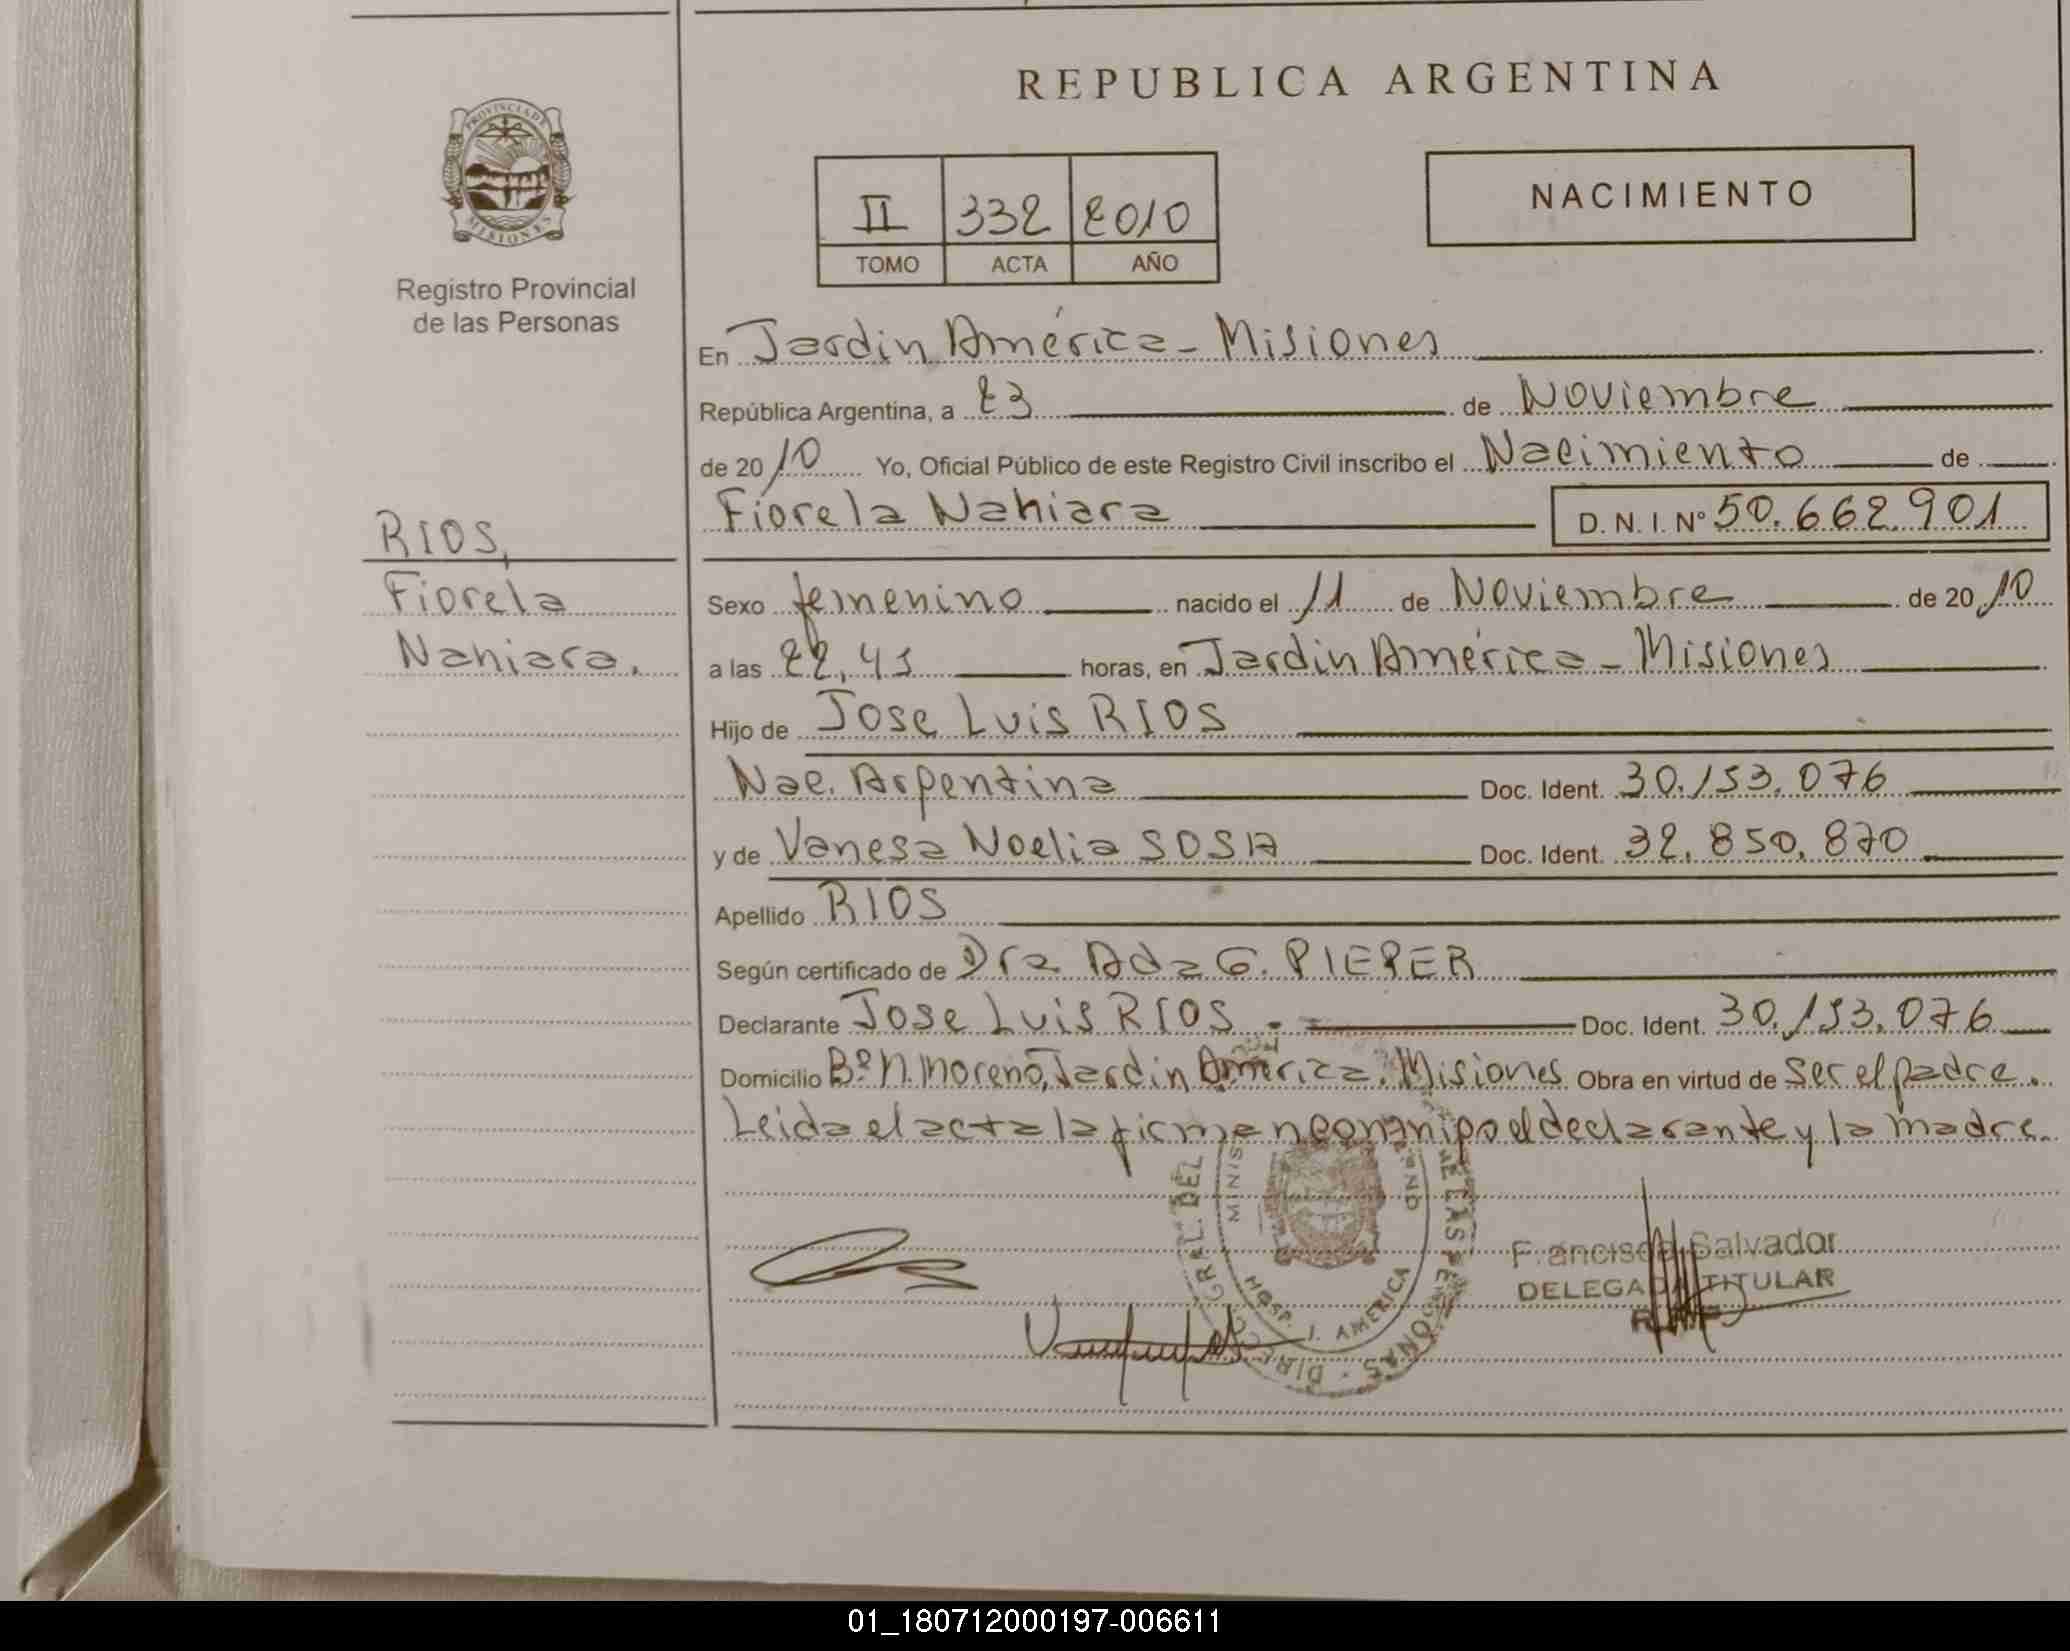 REPUBLICA ARGENTINA
PROVINCIA DE
MISIONES
Registro Provincial
de las Personas
II 332 2010
TOMO ACTA AÑO
NACIMIENTO
En Jardin América - Misiones
República Argentina, a 23 de Noviembre
de 2010 Yo, Oficial Público de este Registro Civil inscribo el Nacimiento de
Fiorela Nahiara D. N. I. Nº 50.662.901
RIOS,
Fiorela
Nahiara.
Sexo femenino nacido el 11 de Noviembre de 2010
a las 22,45 horas, en Jardin América - Misiones
Hijo de Jose Luis RIOS
Nac. Argentina Doc. Ident. 30.153.076
y de Vanesa Noelia SOSA Doc. Ident. 32.850.870
Apellido RIOS
Según certificado de Dra Ada G. PIEPER
Declarante Jose Luis RIOS. - Doc. Ident. 30.153.076
Domicilio Bº M. Moreno, Jardin América. Misiones Obra en virtud de Ser el padre.
Leida el acta la firman conmigo el declarante y la madre.
GRAL. DEL DE LAS PERSONAS · DIREC
MINIS
HOSP. J. AMERICA
Francisca Salvador
DELEGADA TITULAR
01_180712000197-006611